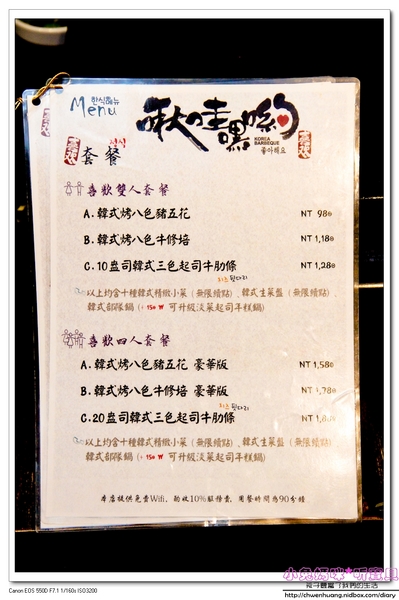 한식메뉴
Menu
啾哇嘿喲
KOREA
BARBEQUE
좋아해요
套餐
喜歡雙人套餐
A.韓式烤八色豬五花 NT 980
B.韓式烤八色牛修培 NT 1,180
C.10盎司韓式三色起司牛肋條 NT 1,280
以上均含十種韓式精緻小菜(無限續點)、韓式生菜盤(無限續點)、
韓式部隊鍋(+150 W 可升級淡菜起司年糕鍋)
喜歡四人套餐
A.韓式烤八色豬五花 豪華版 NT 1,580
B.韓式烤八色牛修培 豪華版 NT 1,780
C.20盎司韓式三色起司牛肋條
以上均含十種韓式精緻小菜(無限續點)、韓式生菜盤(無限續點)、
韓式部隊鍋(+150 W 可升級淡菜起司年糕鍋)
本店提供免費Wifi, 酌收10%服務費, 用餐時間為90分鐘
Canon EOS 550D F7.1 1/160s ISO3200
小兔媽咪*听寶貝
http://chwenhuang.nidbox.com/diary